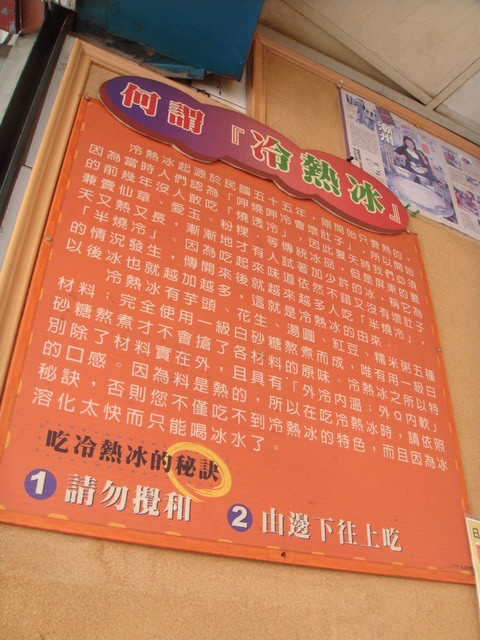 何謂『冷熱冰』
冷熱冰起源於民國五十五年，剛開始只賣熱的，
因為當時人們認為「呷燒呷冷會壞肚子」，所以開始
的前幾年沒人敢吃「燒透冷」，因此夏天時我們必須
兼賣仙草、愛玉、粉粿、等傳統冰品，但是屏東的夏
天又熱又長，漸漸地才有人試著加少許的冰，稱它為
「半燒冷」。因為吃起來味道依然不錯又沒有壞肚子
的情況發生，傳開來後就越來越多人吃「半燒冷」，
以後冰也就越加越多，這就是冷熱冰的由來。
冷熱冰有芋頭、花生、湯圓、紅豆、糯米粥五種
材料：完全使用一級白砂糖熬煮而成，唯有用一級白
砂糖熬煮才不會搶了各材料的原味。冷熱冰之所以特
別除了材料實在外，且具有「外冷內溫：外Q內軟」
的口感。因為料是熱的，所以在吃冷熱冰時，請依照
秘訣，否則您不僅吃不到冷熱冰的特色，而且因為冰
溶化太快而只能喝冰水了。
吃冷熱冰的秘訣
1 請勿攪和
2 由邊下往上吃
潮州